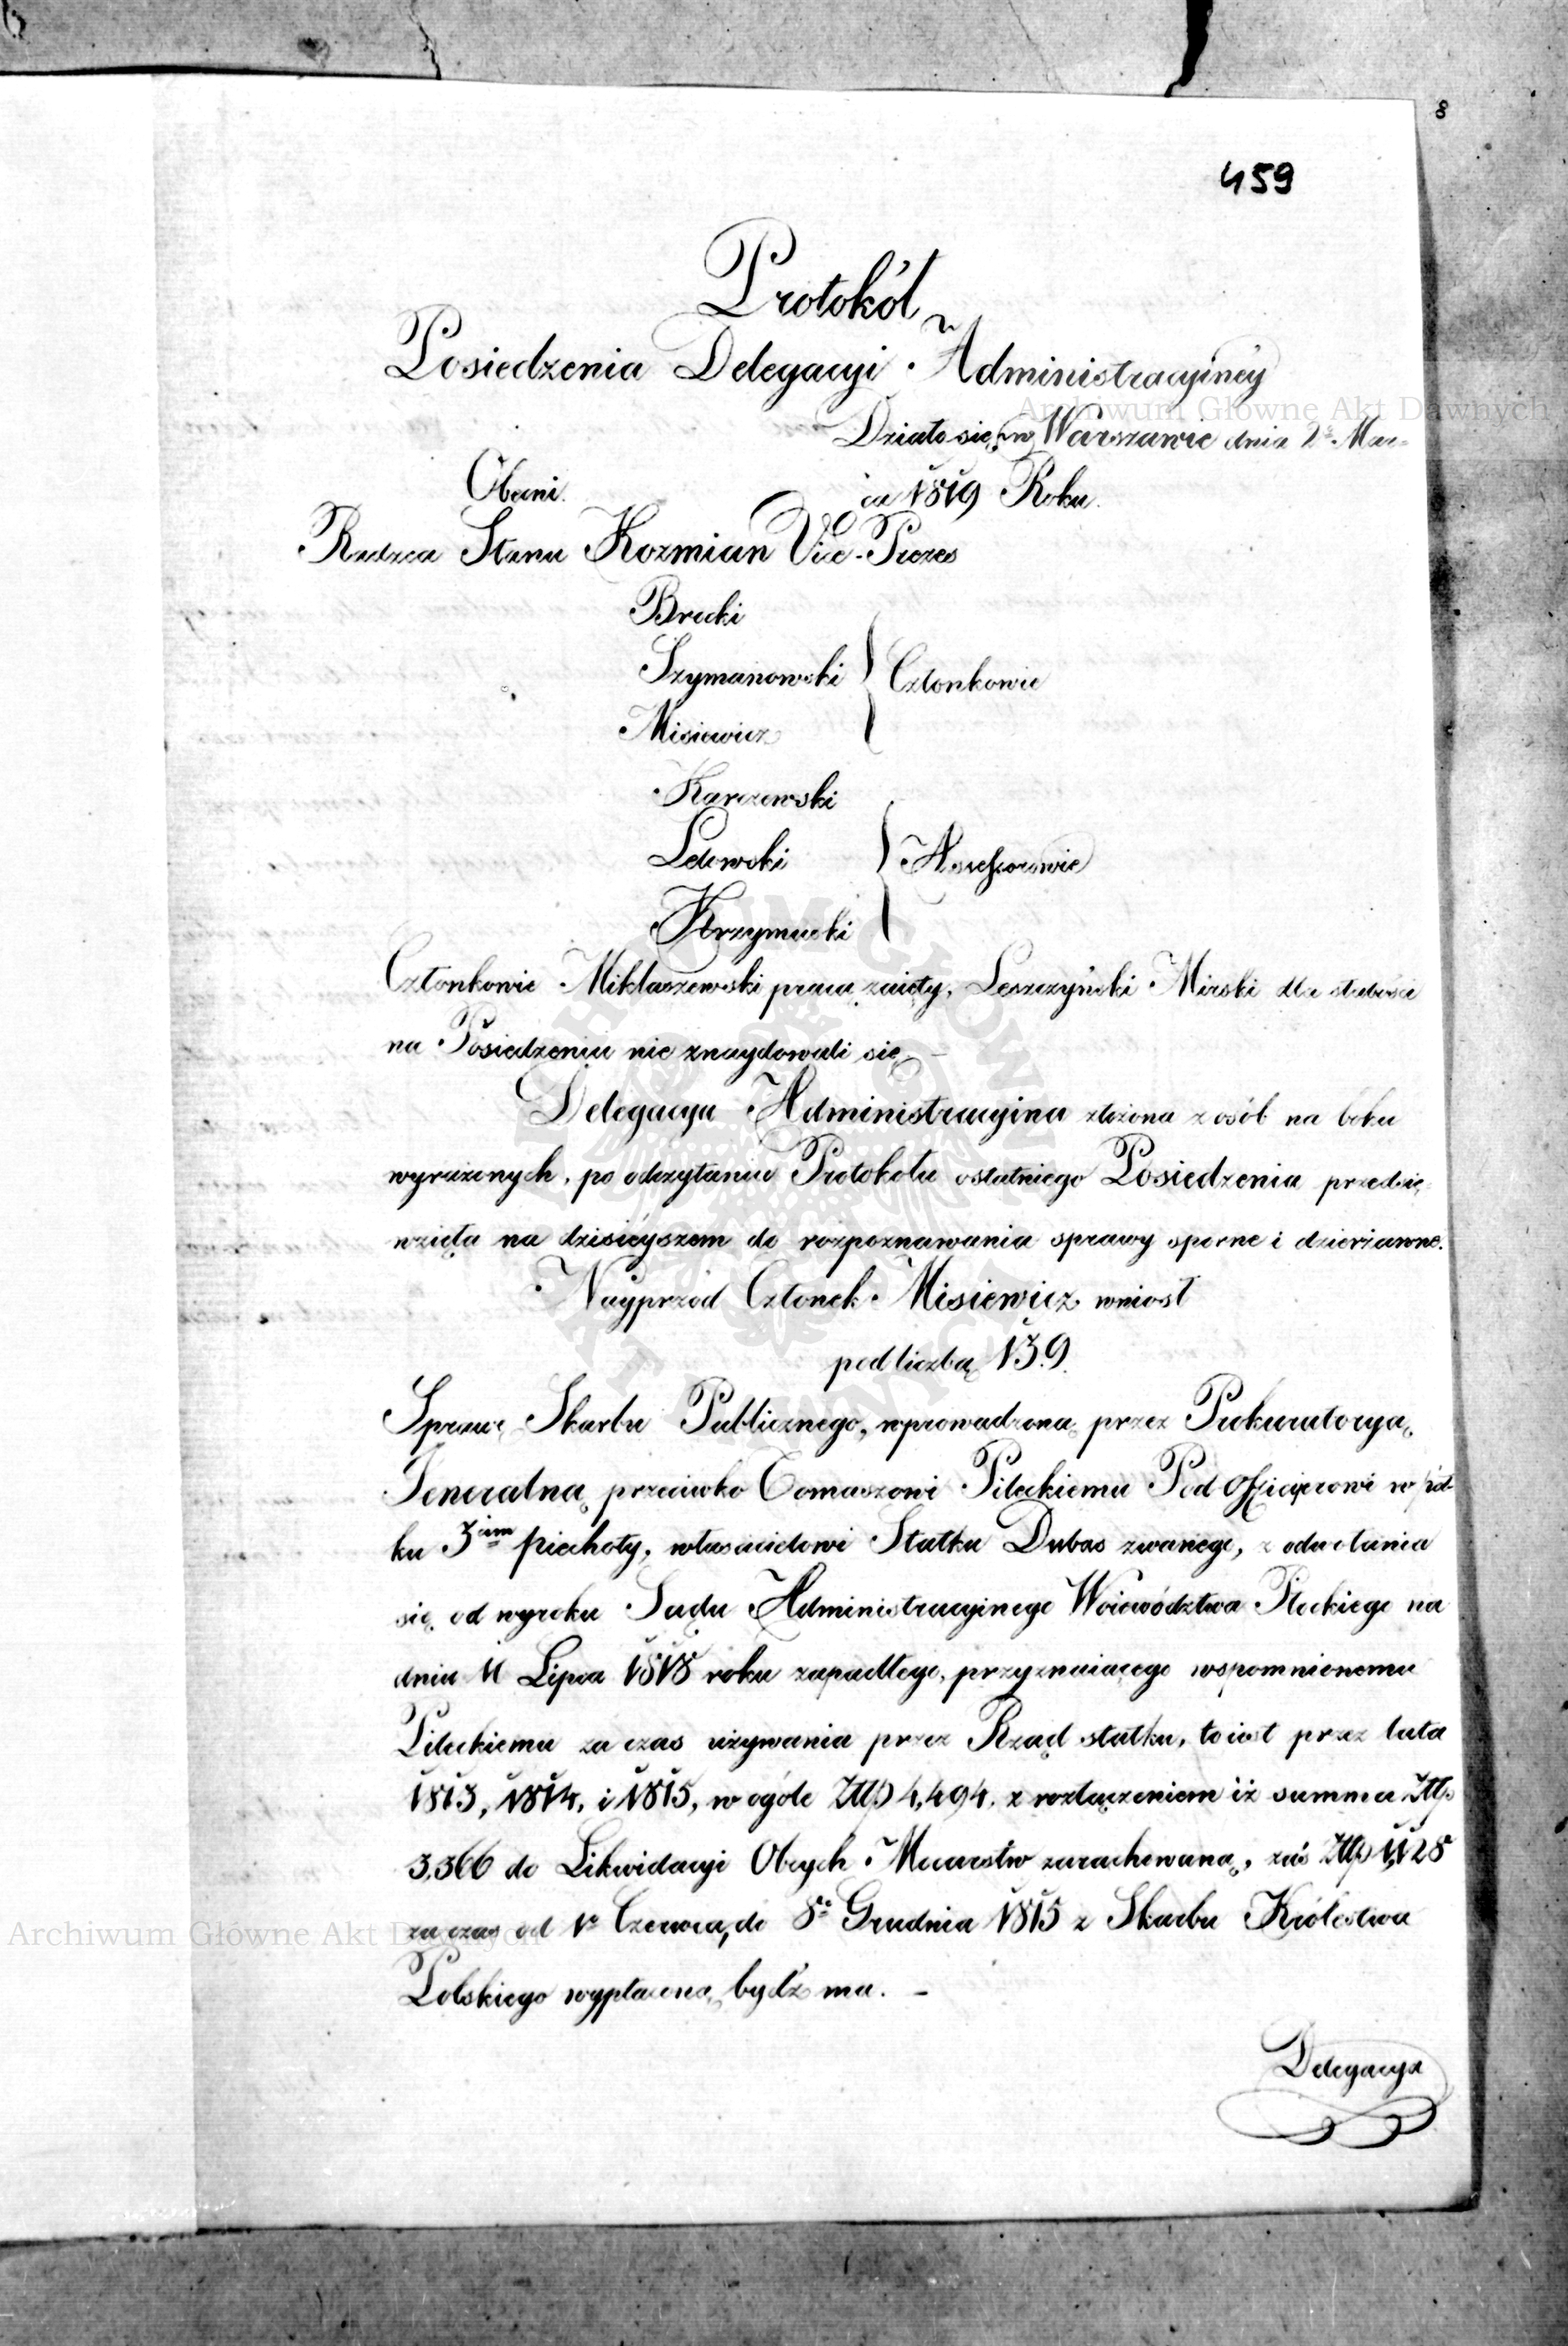 8
459
Protokół
Posiedzenia Delegacyi Administracyiney
Archiwum Główne Akt Dawnych
Działo się w Warszawie dnia 2º Mar-
Obecni.
ca 1819 Roku.
Radzca Stanu Kozmian Vice-Prezes
Brocki
Szymanowski } Członkowie
Misiewicz
Karczewski
Ledowski } Assessorowie
Krzymuski
Członkowie Miklaszewski pracą zaięty, Leszczyński Mirski dla słabości
na Posiedzeniu nie znaydowali się –
Delegacya Administracyina złożona z osób na boku
wyrażonych, po odczytaniu Protokołu ostatniego Posiedzenia przedsię-
wzięła na dzisieyszem do rozpoznawania sprawy sporne i dzierżawne.
Nayprzód Członek Misiewicz wniosł
pod liczbą 139.
Sprawę Skarbu Publicznego, wprowadzoną przez Prokuratoryą
Jeneralną przeciwko Tomaszowi Pileckiemu Pod Officierowi w Pół-
ku 3cim piechoty, właścicielowi Statku Dubas zwanego, z odwołania
się od wyroku Sądu Administracyinego Woiewództwa Płockiego na
dniu 11 Lipca 1818 roku zapadłego, przyznaiącego wspomnionemu
Pileckiemu za czas używania przez Rząd statku, to iest przez lata
1813, 1814, i 1815, w ogóle Złłp 4,494. z rozłączeniem iż summa Złłp
3,366 do Likwidacyi Obcych Mocarstw zarachowaną, zaś Złłp 1,128
za czas od 1º Czerwca, do 8º Grudnia 1815 z Skarbu Królestwa
Archiwum Główne Akt Dawnych
Polskiego wypłaconą bydź ma. –
Delegacya